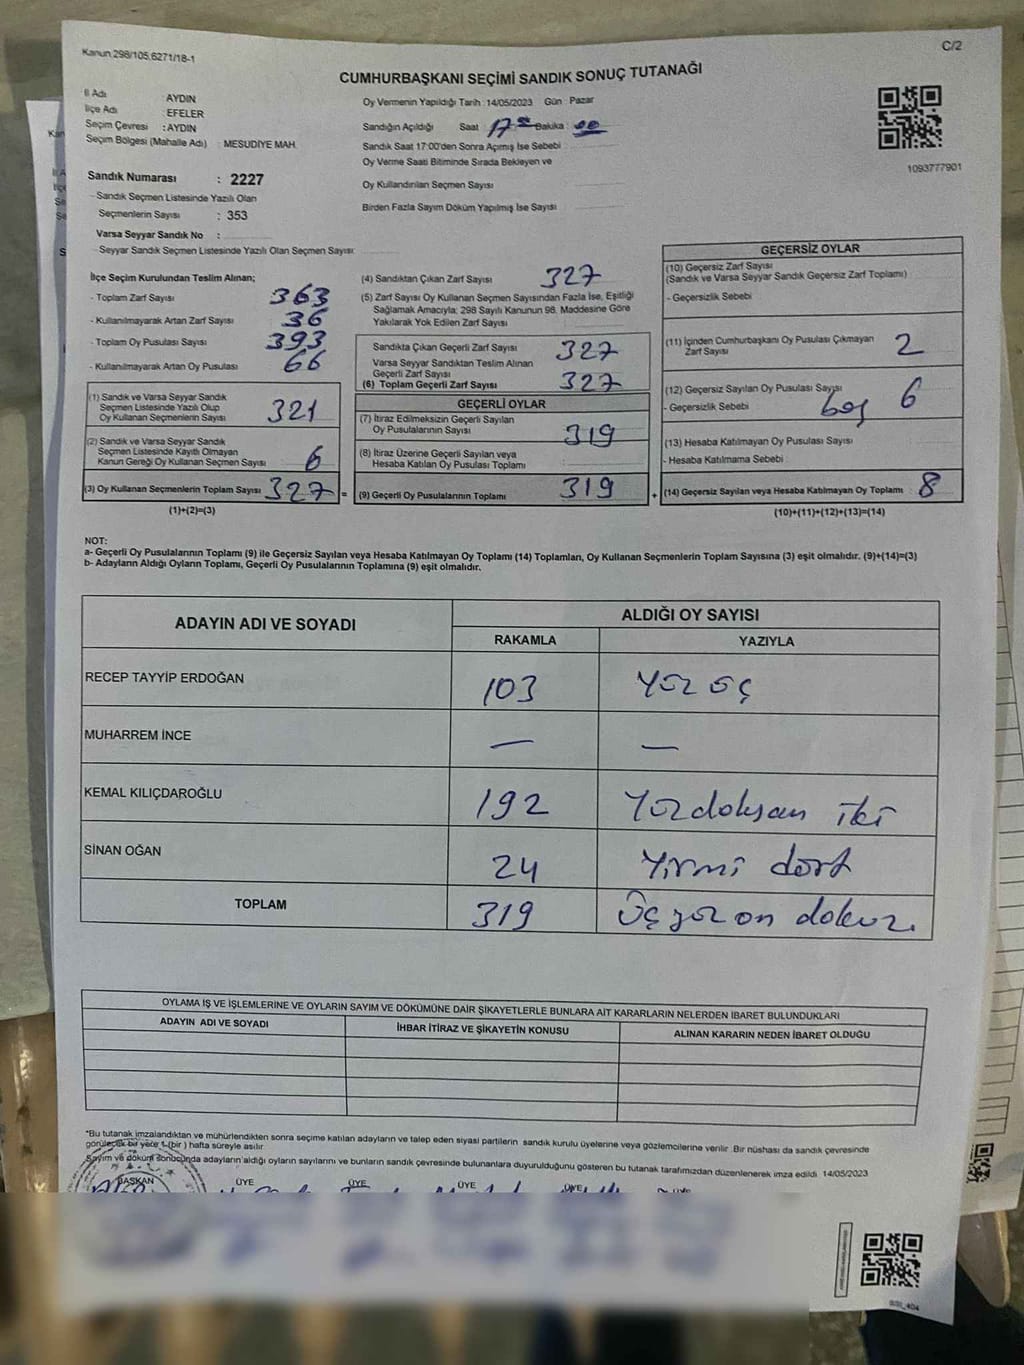 Kanun 298/105,6271/18-1
C/2
CUMHURBAŞKANI SEÇİMİ SANDIK SONUÇ TUTANAĞI
İl Adı : AYDIN
İlçe Adı : EFELER
Seçim Çevresi : AYDIN
Seçim Bölgesi (Mahalle Adı) : MESUDİYE MAH.
Sandık Numarası : 2227
Sandık Seçmen Listesinde Yazılı Olan
Seçmenlerin Sayısı : 353
Varsa Seyyar Sandık No :
Seyyar Sandık Seçmen Listesinde Yazılı Olan Seçmen Sayısı:
Oy Vermenin Yapıldığı Tarih : 14/05/2023 Gün : Pazar
Sandığın Açıldığı Saat : 17 00 Dakika : 00
Sandık Saat 17:00'den Sonra Açımış İse Sebebi :
Oy Verme Saati Bitiminde Sırada Bekleyen ve
Oy Kullandırılan Seçmen Sayısı
Birden Fazla Sayım Döküm Yapılmış İse Sayısı
1093777901
İlçe Seçim Kurulundan Teslim Alınan;
- Toplam Zarf Sayısı 363
- Kullanılmayarak Artan Zarf Sayısı 36
- Toplam Oy Pusulası Sayısı 393
- Kullanılmayarak Artan Oy Pusulası 66
(1) Sandık ve Varsa Seyyar Sandık
Seçmen Listesinde Yazılı Olup
Oy Kullanan Seçmenlerin Sayısı 321
(2) Sandık ve Varsa Seyyar Sandık
Seçmen Listesinde Kayıtlı Olmayan
Kanun Gereği Oy Kullanan Seçmen Sayısı 6
(3) Oy Kullanan Seçmenlerin Toplam Sayısı 327 =
(1)+(2)=(3)
(4) Sandıktan Çıkan Zarf Sayısı 327
(5) Zarf Sayısı Oy Kullanan Seçmen Sayısından Fazla İse, Eşitliği
Sağlamak Amacıyla; 298 Sayılı Kanunun 98. Maddesine Göre
Yakılarak Yok Edilen Zarf Sayısı :
Sandıkta Çıkan Geçerli Zarf Sayısı 327
Varsa Seyyar Sandıktan Teslim Alınan
Geçerli Zarf Sayısı
(6) Toplam Geçerli Zarf Sayısı 327
GEÇERLİ OYLAR
(7) İtiraz Edilmeksizin Geçerli Sayılan
Oy Pusulalarının Sayısı 319
(8) İtiraz Üzerine Geçerli Sayılan veya
Hesaba Katılan Oy Pusulası Toplamı :
(9) Geçerli Oy Pusulalarının Toplamı 319 +
GEÇERSİZ OYLAR
(10) Geçersiz Zarf Sayısı
(Sandık ve Varsa Seyyar Sandık Geçersiz Zarf Toplamı)
- Geçersizlik Sebebi
(11) İçinden Cumhurbaşkanı Oy Pusulası Çıkmayan
Zarf Sayısı 2
(12) Geçersiz Sayılan Oy Pusulası Sayısı 6
- Geçersizlik Sebebi boş
(13) Hesaba Katılmayan Oy Pusulası Sayısı
- Hesaba Katılmama Sebebi :
(14) Geçersiz Sayılan veya Hesaba Katılmayan Oy Toplamı : 8
(10)+(11)+(12)+(13)=(14)
NOT:
a- Geçerli Oy Pusulalarının Toplamı (9) ile Geçersiz Sayılan veya Hesaba Katılmayan Oy Toplamı (14) Toplamları, Oy Kullanan Seçmenlerin Toplam Sayısına (3) eşit olmalıdır. (9)+(14)=(3)
b- Adayların Aldığı Oyların Toplamı, Geçerli Oy Pusulalarının Toplamına (9) eşit olmalıdır.
ADAYIN ADI VE SOYADI
ALDIĞI OY SAYISI
RAKAMLA YAZIYLA
RECEP TAYYİP ERDOĞAN 103 Yüz üç
MUHARREM İNCE — —
KEMAL KILIÇDAROĞLU 192 Yüzdoksan iki
SİNAN OĞAN 24 Yirmi dört
TOPLAM 319 Üç yüz on dokuz.
OYLAMA İŞ VE İŞLEMLERİNE VE OYLARIN SAYIM VE DÖKÜMÜNE DAİR ŞİKAYETLERLE BUNLARA AİT KARARLARIN NELERDEN İBARET BULUNDUKLARI
ADAYIN ADI VE SOYADI İHBAR İTİRAZ VE ŞİKAYETİN KONUSU ALINAN KARARIN NEDEN İBARET OLDUĞU
*Bu tutanak imzalandıktan ve mühürlendikten sonra seçime katılan adayların ve talep eden siyasi partilerin sandık kurulu üyelerine veya gözlemcilerine verilir. Bir nüshası da sandık çevresinde
görülecek bir yere 1 (bir) hafta süreyle asılır.
Sayım ve döküm sonucunda adayların aldığı oyların sayılarını ve bunların sandık çevresinde bulunanlara duyurulduğunu gösteren bu tutanak tarafımızdan düzenlenerek imza edildi. 14/05/2023
BAŞKAN ÜYE ÜYE ÜYE ÜYE ÜYE